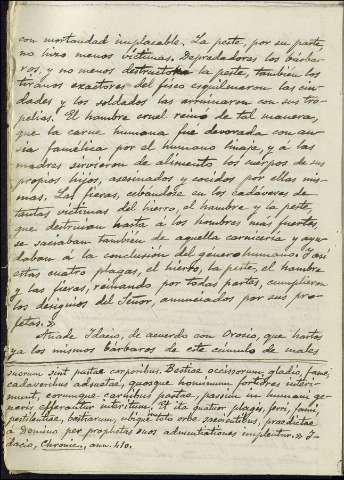 con mortandad implacable. La peste, por su parte,
no hizo menos víctimas. Depredadores los bárba-
ros, y no menos destructora la peste, también los
tiranos exactores del fisco esquilmaron las ciu-
dades y los soldados las arruinaron con sus tro-
pelías. El hambre cruel reinó de tal manera,
que la carne humana fue devorada con an-
sia famélica por el humano linaje, y á las
madres sirvieron de alimento los cuerpos de sus
propios hijos, asesinados y cocidos por ellas mis-
mas. Las fieras, cebándose en los cadáveres de
tantas víctimas del hierro, el hambre y la peste,
que destruían hasta á los hombres más fuertes,
se saciaban también de aquella carnicería y ayu-
daban á la conclusión del género humano. Y así
estas cuatro plagas, el hierro, la peste, el hambre
y las fieras, reinando por todas partes, cumplieron
los designios del Señor, anunciados por sus pro-
fetas.»
Añade Idacio, de acuerdo con Orosio, que hartos
ya los mismos bárbaros de este cúmulo de males
suorum sint pastae corporibus. Bestiae occisorum gladio, fame,
cadaveribus adsuetae, quosque hominum fortiores interi-
munt, eorumque carnibus pastae, passim in humani ge-
neris efferantur interitum. Et ita quatuor plagis, ferri, famis,
pestilentiae, bestiarum, ubique toto orbe saevientibus, praedictae
á Domino per prophetas suos adnuntiationes implentur.» I-
dacio, Chronicon, ann. 410.